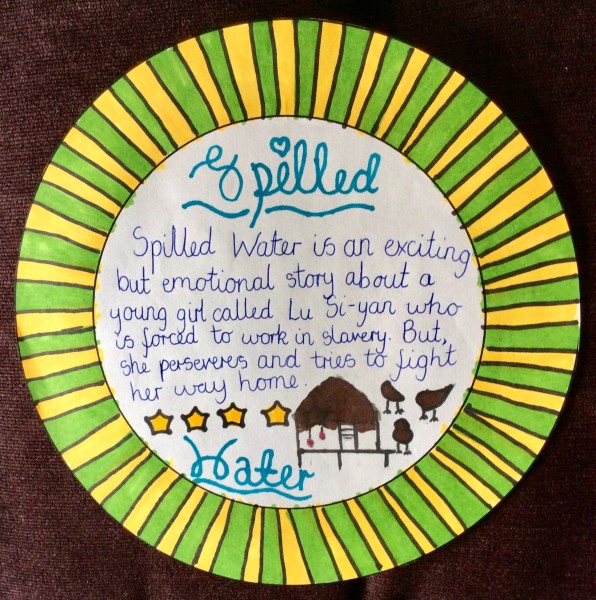 Spilled
Spilled Water is an exciting
but emotional story about a
young girl called Lu Si-yan who
is forced to work in slavery. But,
she perseveres and tries to fight
her way home.
Water